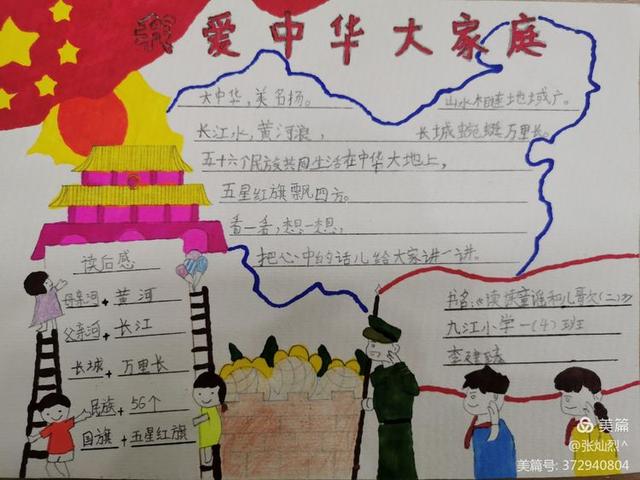 我爱中华大家庭
大中华，美名扬。
山水相连地域广。
长江水，黄河浪，
长城蜿蜒万里长。
五十六个民族共同生活在中华大地上，
五星红旗飘四方。
看一看，想一想，
把心中的话儿给大家讲一讲。
读后感
母亲河+黄河
父亲河+长江
长城+万里长
民族+56个
国旗+五星红旗
读童谣和儿歌(二)
九江小学一(4)班
美篇
@张灿烈^
美篇号: 372940804